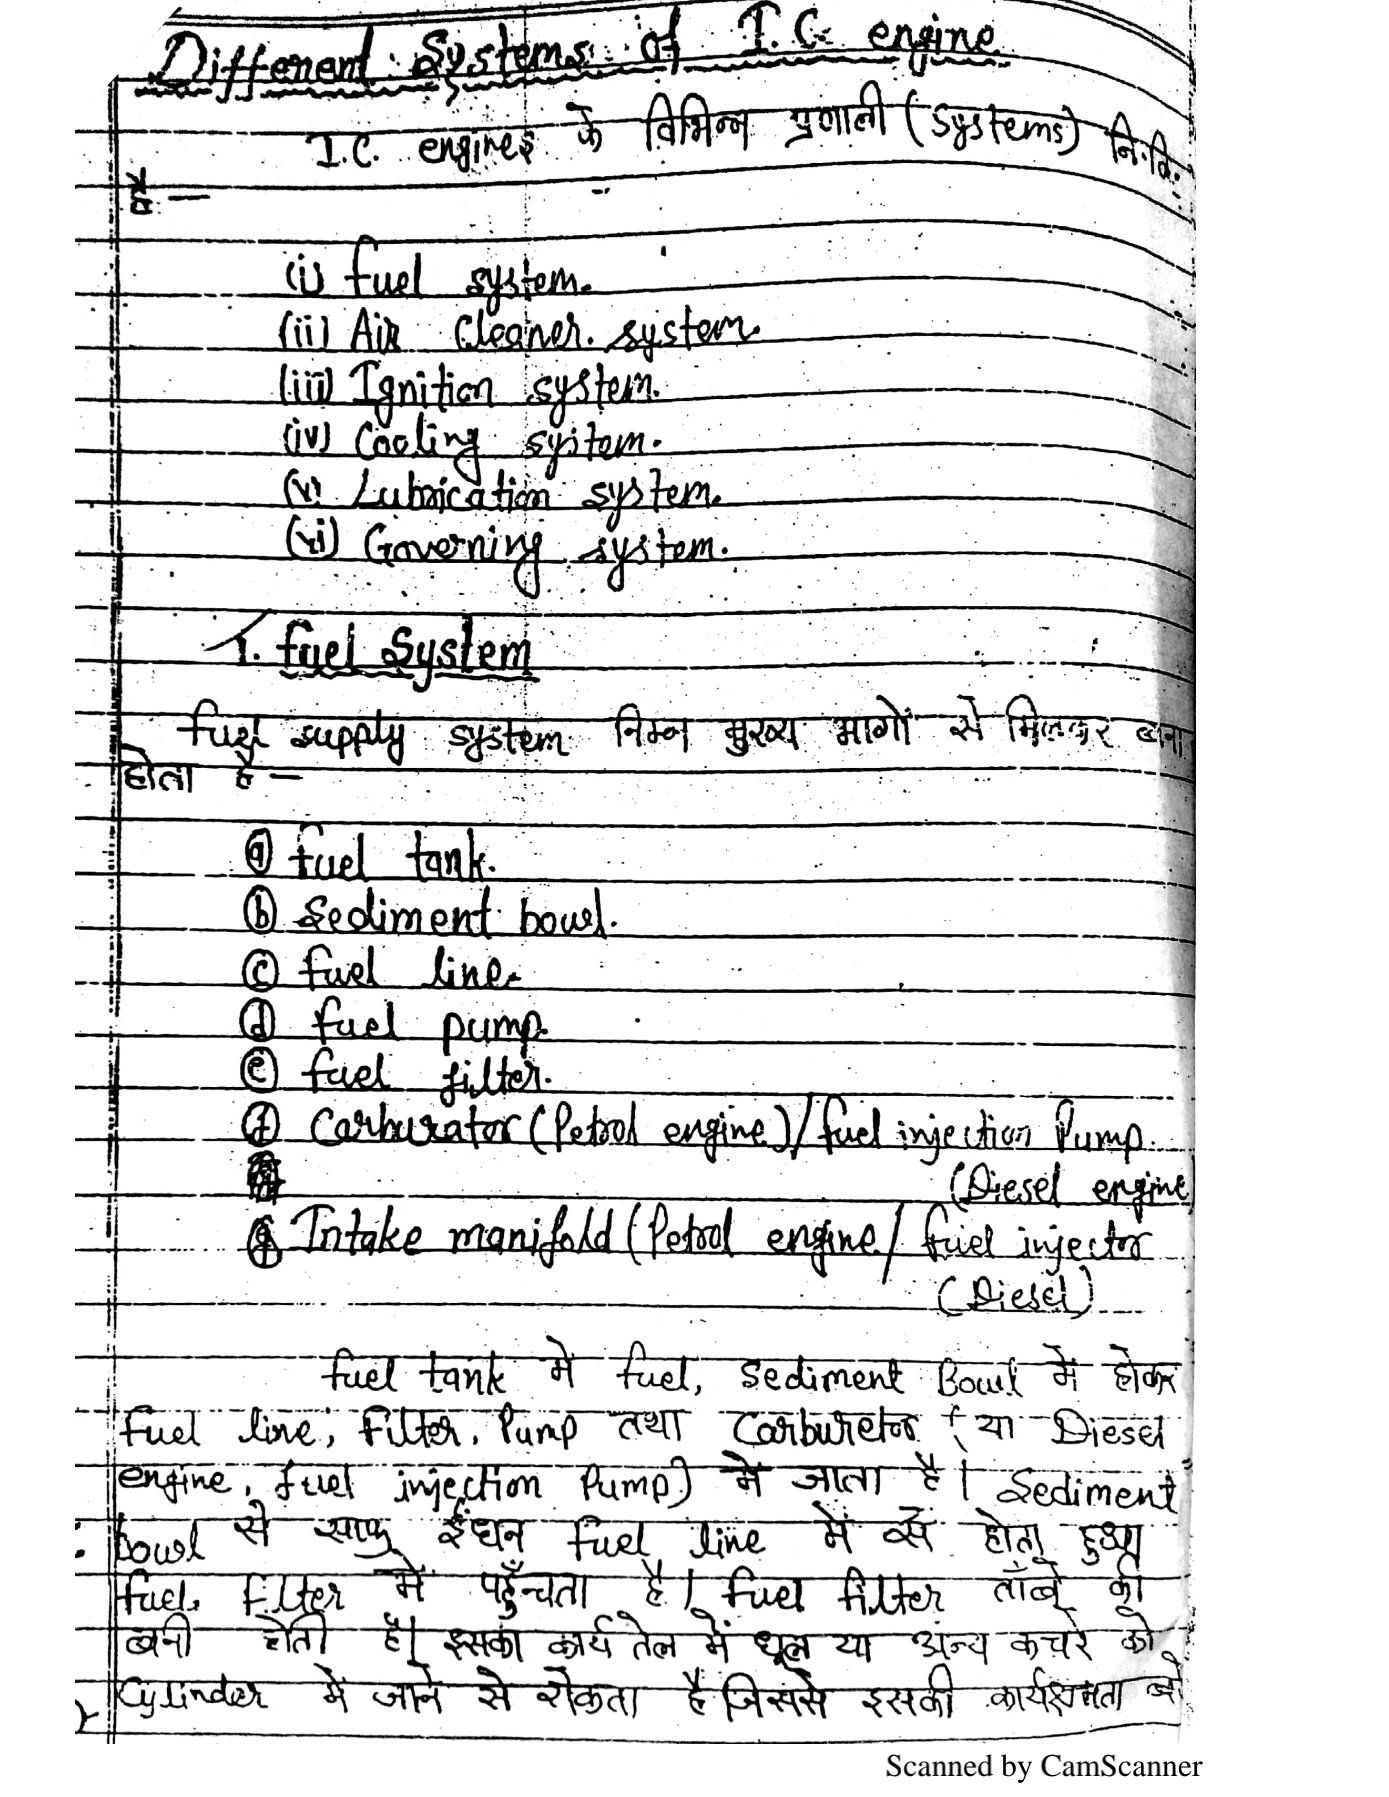 Different Systems of I.C. engine
I.C. engines के विभिन्न प्रणाली (systems) नि.वि.
हैं —
(i) fuel system.
(ii) Air Cleaner. system.
(iii) Ignition system.
(iv) Cooling system.
(v) Lubrication system.
(vi) Governing system.
1. fuel System
fuel supply system निम्न मुख्य भागों से मिलकर बना
होता है —
(a) fuel tank.
(b) Sediment bowl.
(c) fuel line.
(d) fuel pump.
(e) fuel filter.
(f) Carburator (Petrol engine) / fuel injection Pump.
(Diesel engine
(g) Intake manifold (Petrol engine / fuel injector
(Diesel)
fuel tank में fuel, Sediment Bowl में होकर
fuel line, Filter, Pump तथा Carburetor ( या Diesel
engine, fuel injection Pump) में जाता है। Sediment
bowl से साफ ईंधन fuel line में से होता हुआ
fuel. Filter में पहुँचता है। fuel filter ताँबे की
बनी होती है। इसका कार्य तेल में धूल या अन्य कचरे को
Cylinder में जाने से रोकता है जिससे इसकी कार्यक्षमता
Scanned by CamScanner